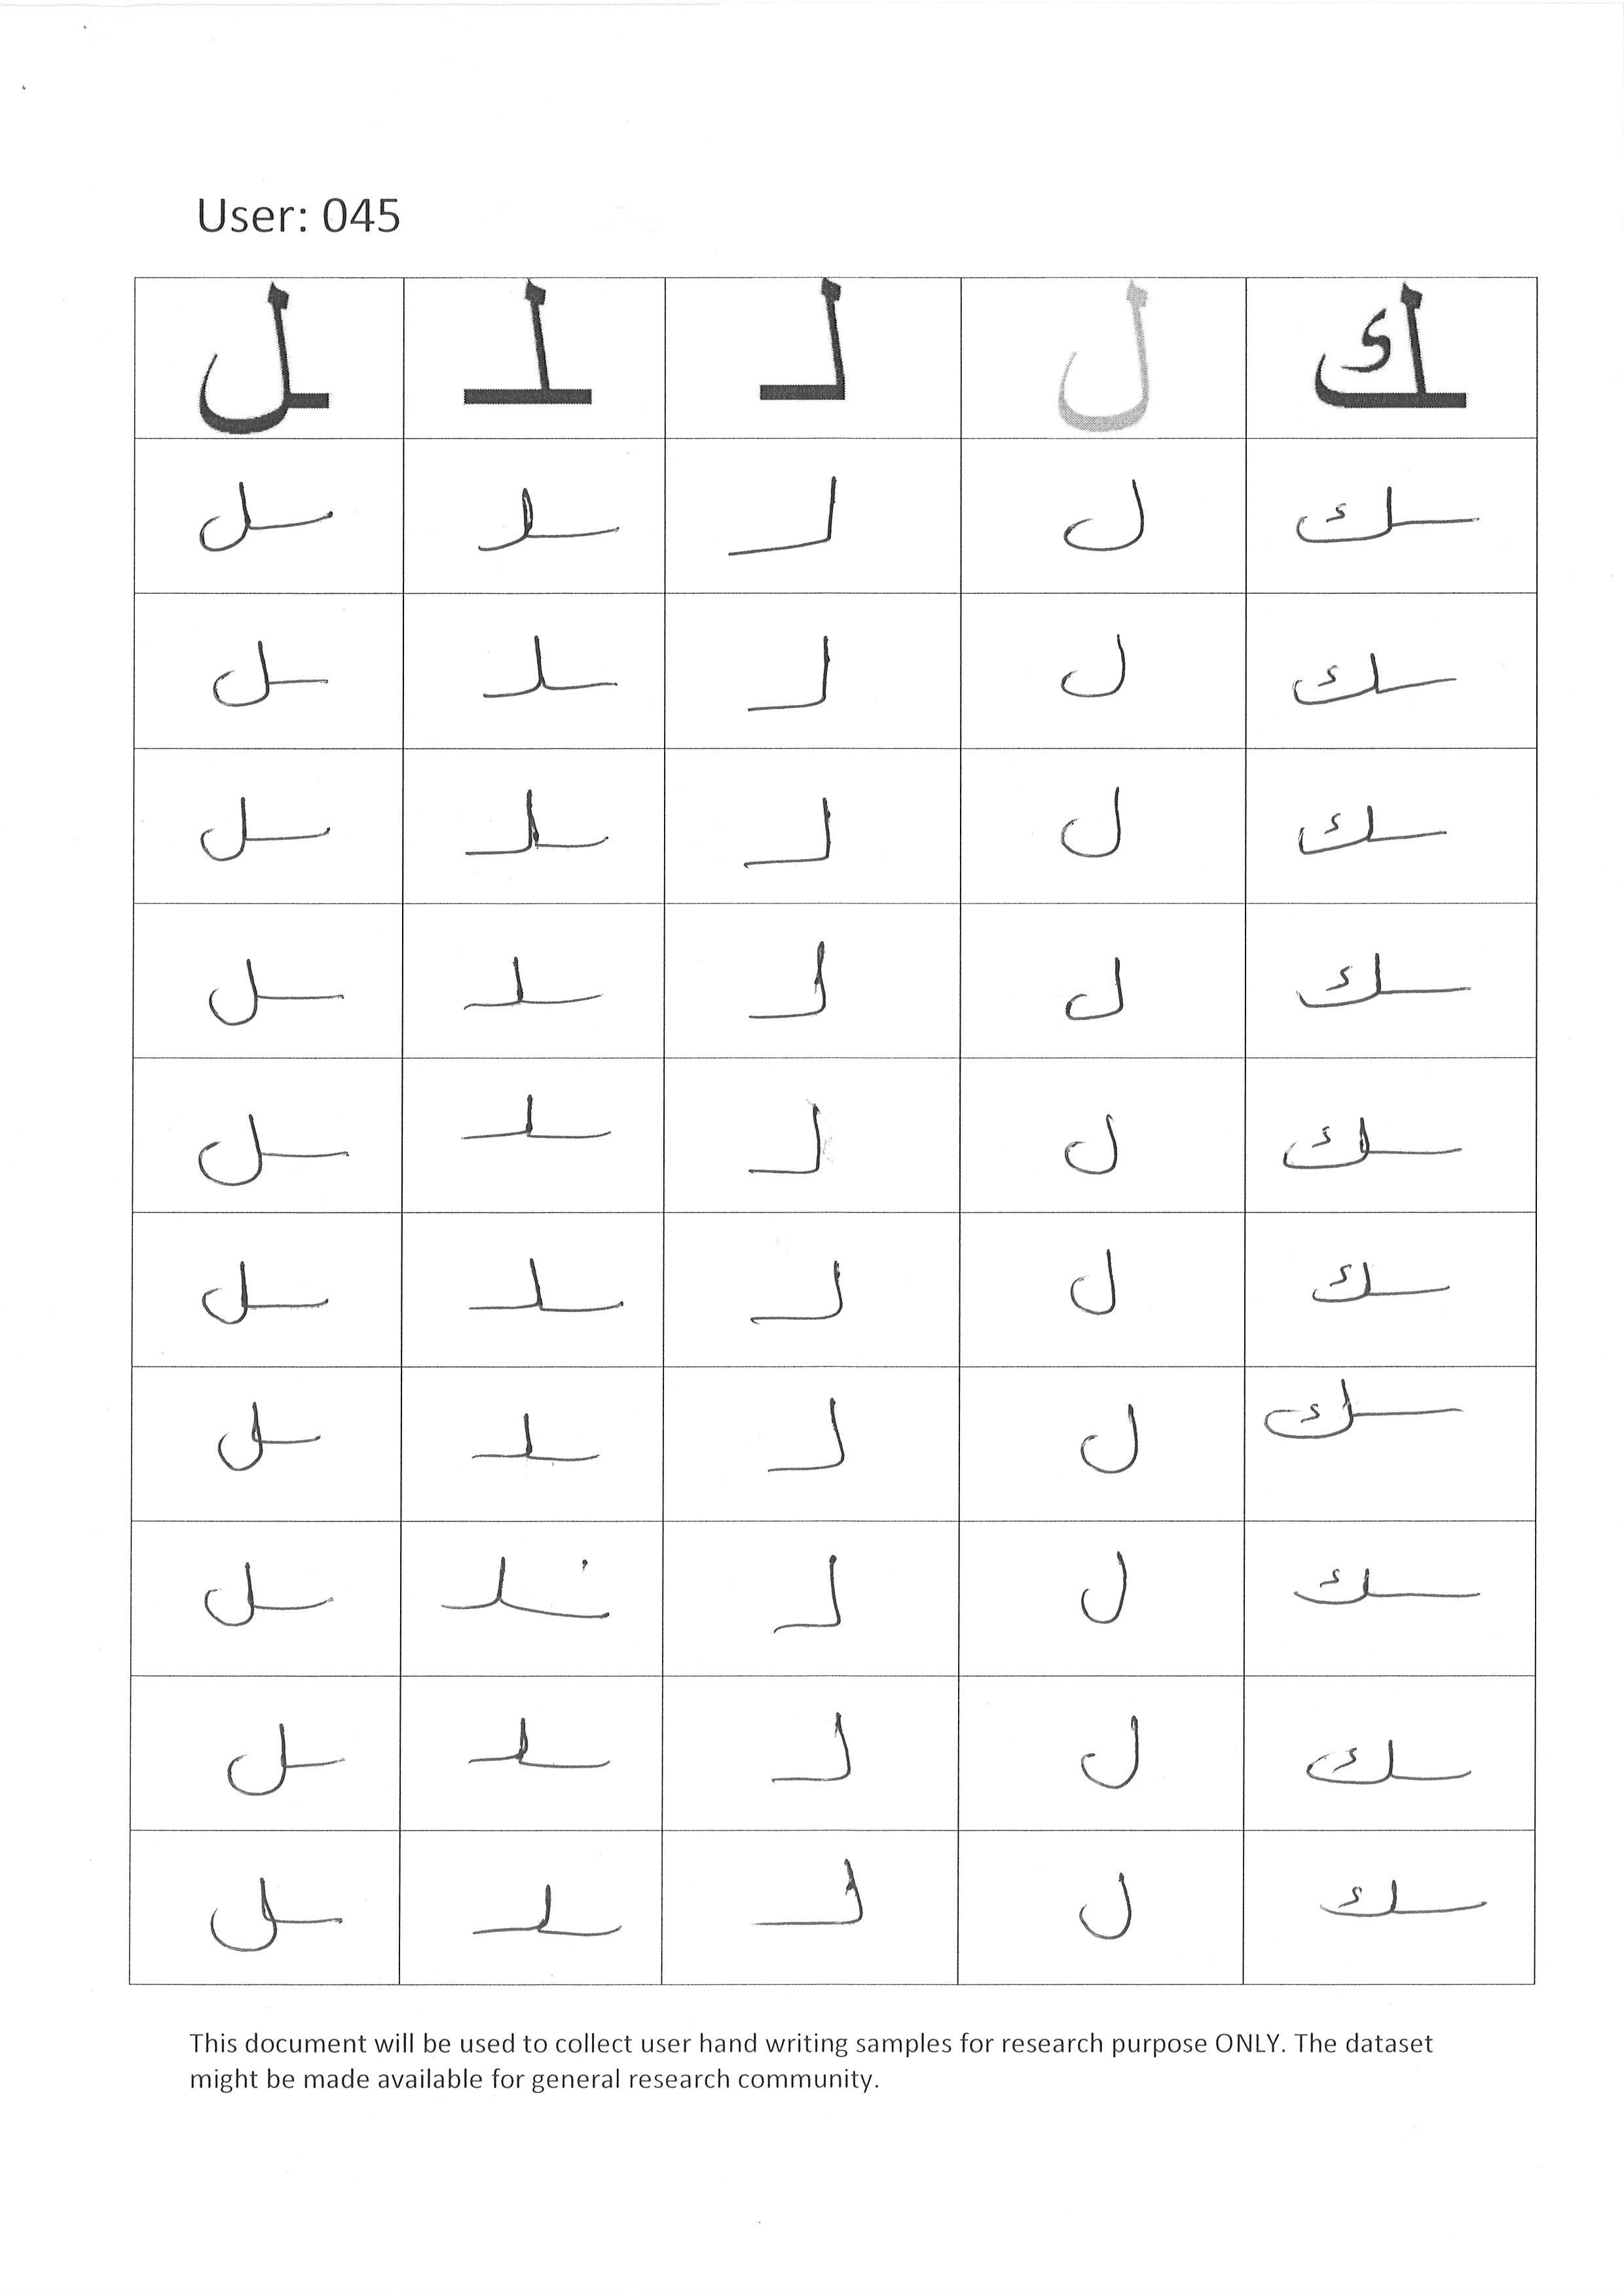 User: 045
ك ل لـ ـلـ ـل
ـك ل لـ ـلـ ـل
ـك ل لـ ـلـ ـل
ـك ل لـ ـلـ ـل
ـك ل لـ ـلـ ـل
ـك ل لـ ـلـ ـل
ـك ل لـ ـلـ ـل
ـك ل لـ ـلـ ـل
ـك ل لـ ـلـ ـل
ـك ل لـ ـلـ ـل
ـك ل لـ ـلـ ـل
This document will be used to collect user hand writing samples for research purpose ONLY. The dataset
might be made available for general research community.